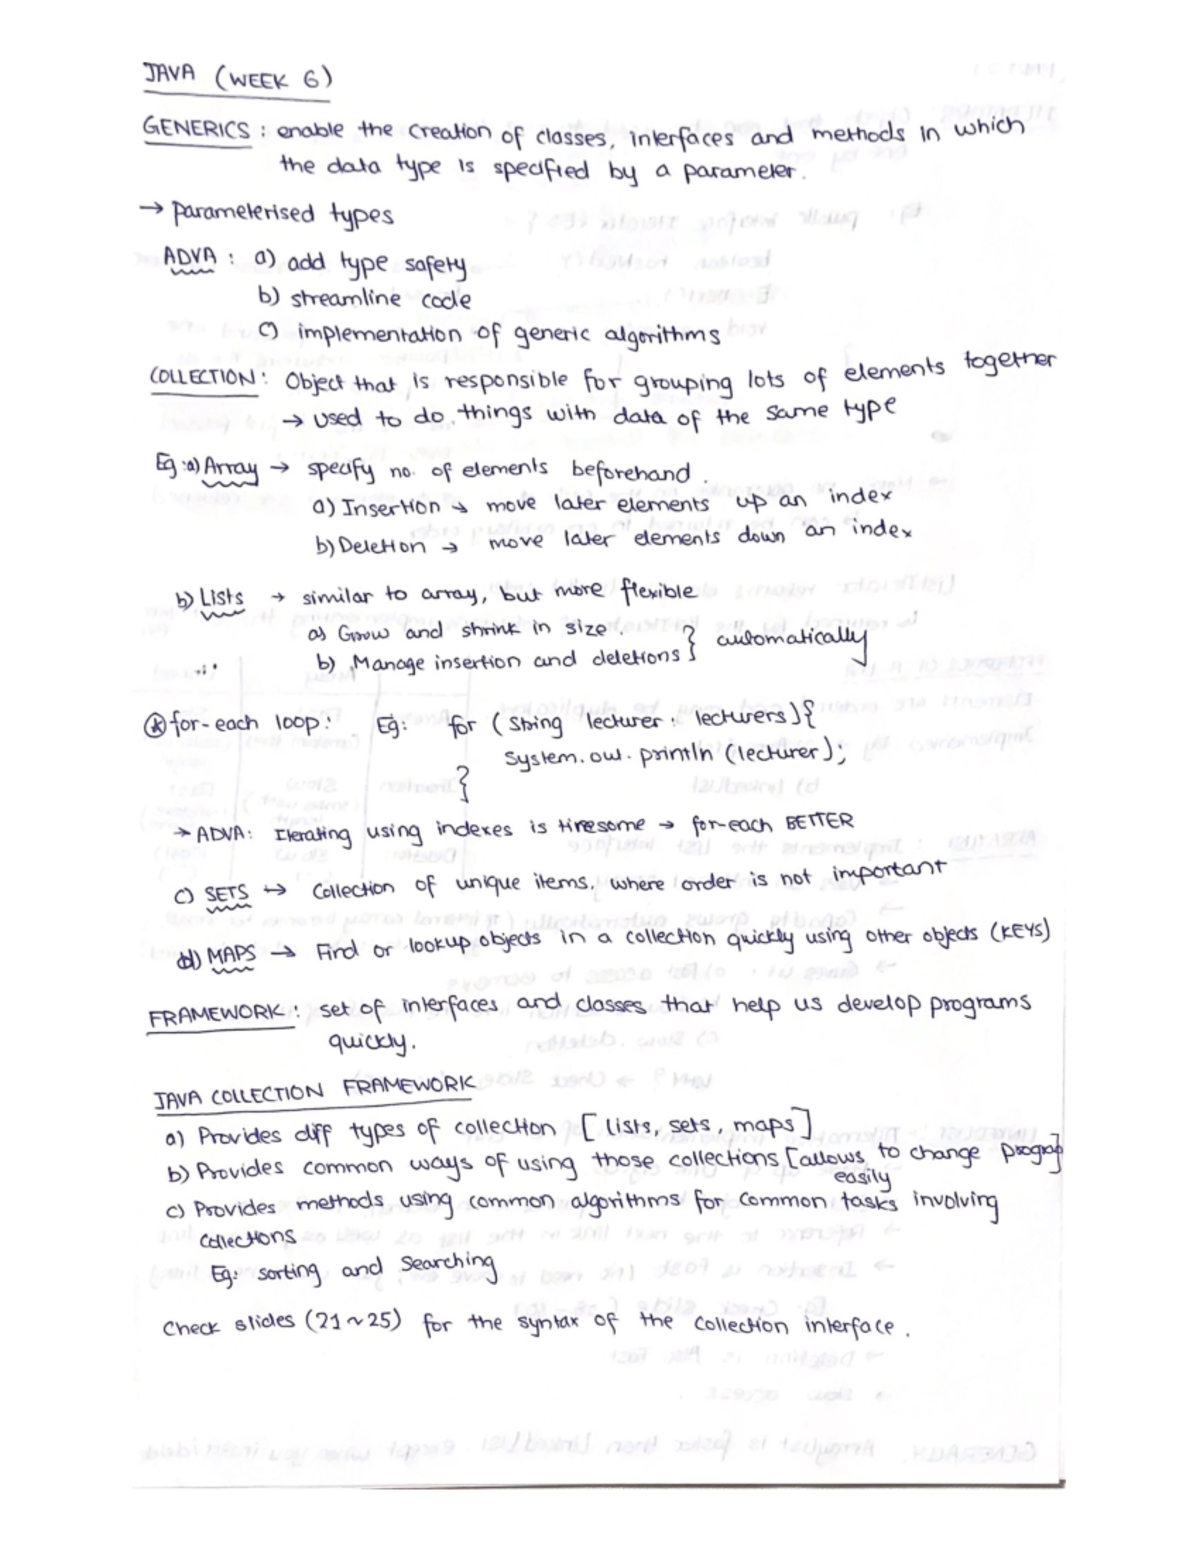 JAVA (WEEK 6)
GENERICS : enable the creation of classes, interfaces and methods in which
the data type is specified by a parameter.
→ parameterised types
ADVA : a) add type safety
b) streamline code
c) implementation of generic algorithms
COLLECTION : Object that is responsible for grouping lots of elements together
→ used to do things with data of the same type
Eg :a) Array → specify no. of elements beforehand.
a) Insertion → move later elements up an index
b) Deletion → move later elements down an index
b) Lists → similar to array, but more flexible
a) Grow and shrink in size.
b) Manage insertion and deletions } automatically
⊛ for-each loop: Eg: for (String lecturer : lecturers){
System.out.println (lecturer);
}
→ ADVA: Iterating using indexes is tiresome → for-each BETTER
c) SETS → Collection of unique items, where order is not important
d) MAPS → Find or lookup objects in a collection quickly using other objects (KEYS)
FRAMEWORK : set of interfaces and classes that help us develop programs
quickly.
JAVA COLLECTION FRAMEWORK
a) Provides diff types of collection [lists, sets, maps]
b) Provides common ways of using those collections [allows to change prog]
easily
c) Provides methods using common algorithms for common tasks involving
collections
Eg: sorting and searching
Check slides (21~25) for the syntax of the collection interface.